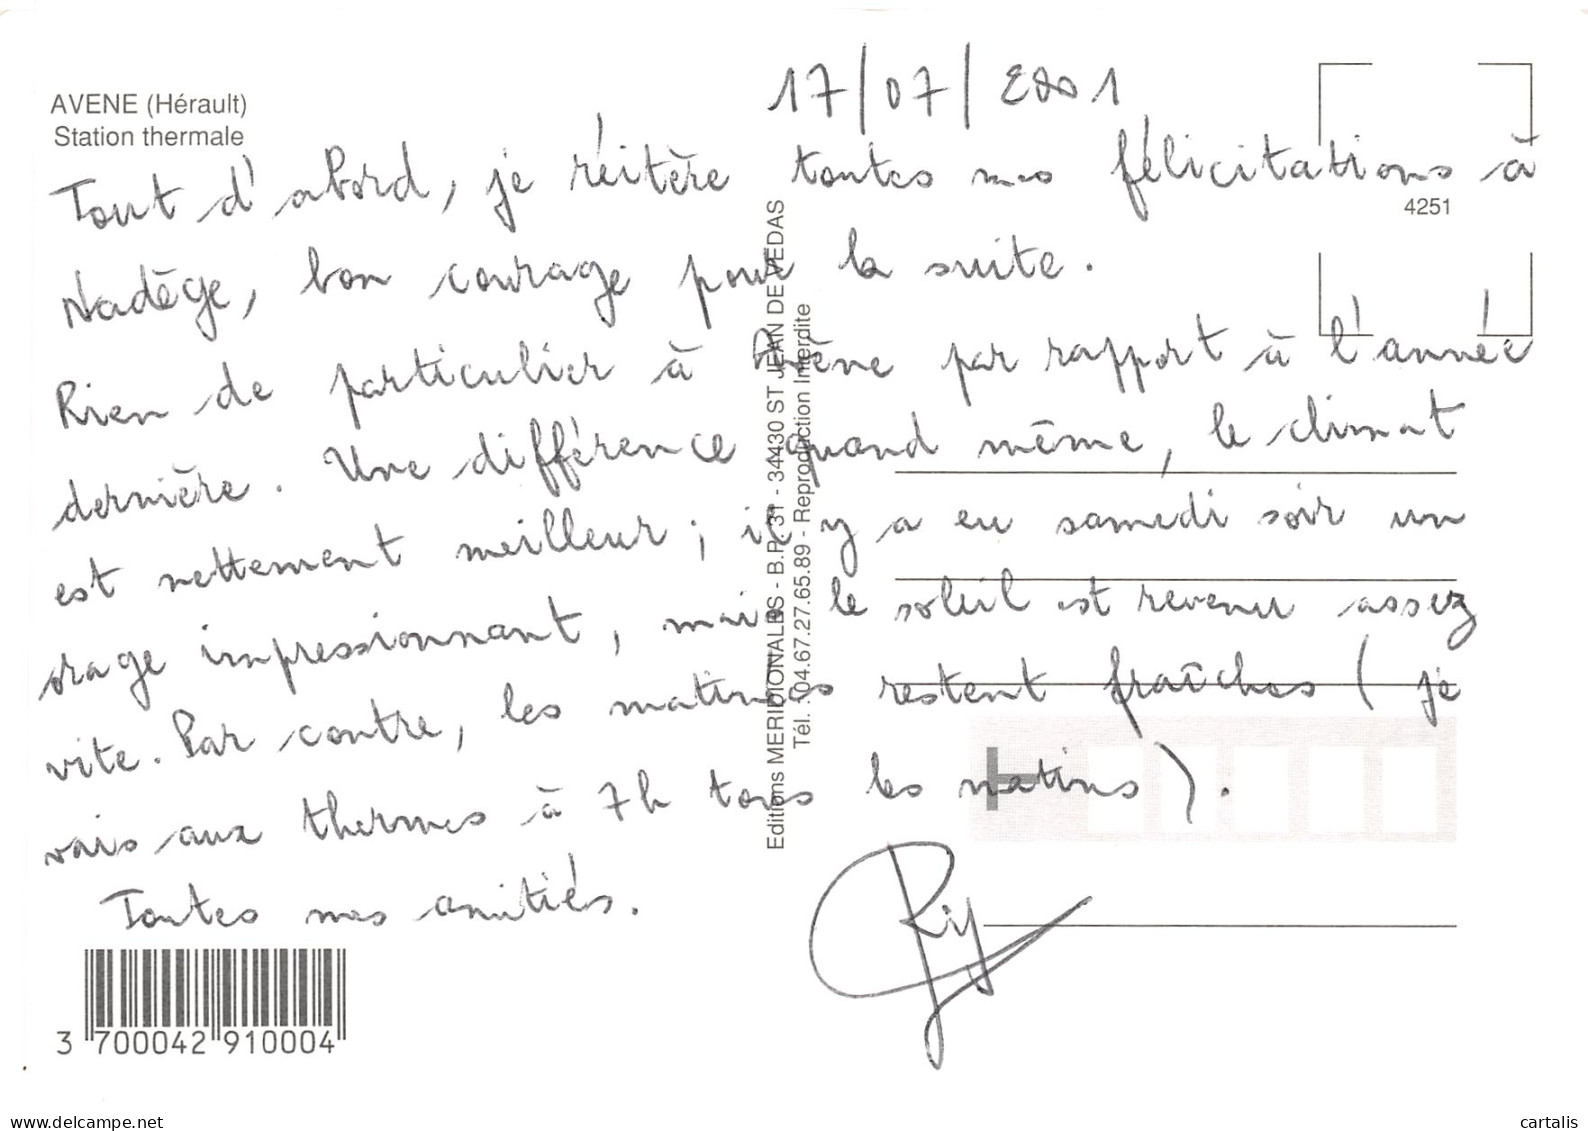 AVENE (Hérault)
Station thermale
17/07/2001
4251
Tout d'abord, je réitère toutes mes félicitations à
Nadège, bon courage pour la suite.
Rien de particulier à Avène par rapport à l'année
dernière. Une différence quand même, le climat
est nettement meilleur ; il y a eu samedi soir un
orage impressionnant, mais le soleil est revenu assez
vite. Par contre, les matinées restent fraîches ( je
vais aux thermes à 7h tous les matins ).
Toutes mes amitiés.
Editions MERIDIONALES - B.P. 31 - 34430 ST JEAN DE VEDAS
Tél. : 04.67.27.65.89 - Reproduction Interdite
3 700042 910004
www.delcampe.net
cartalis